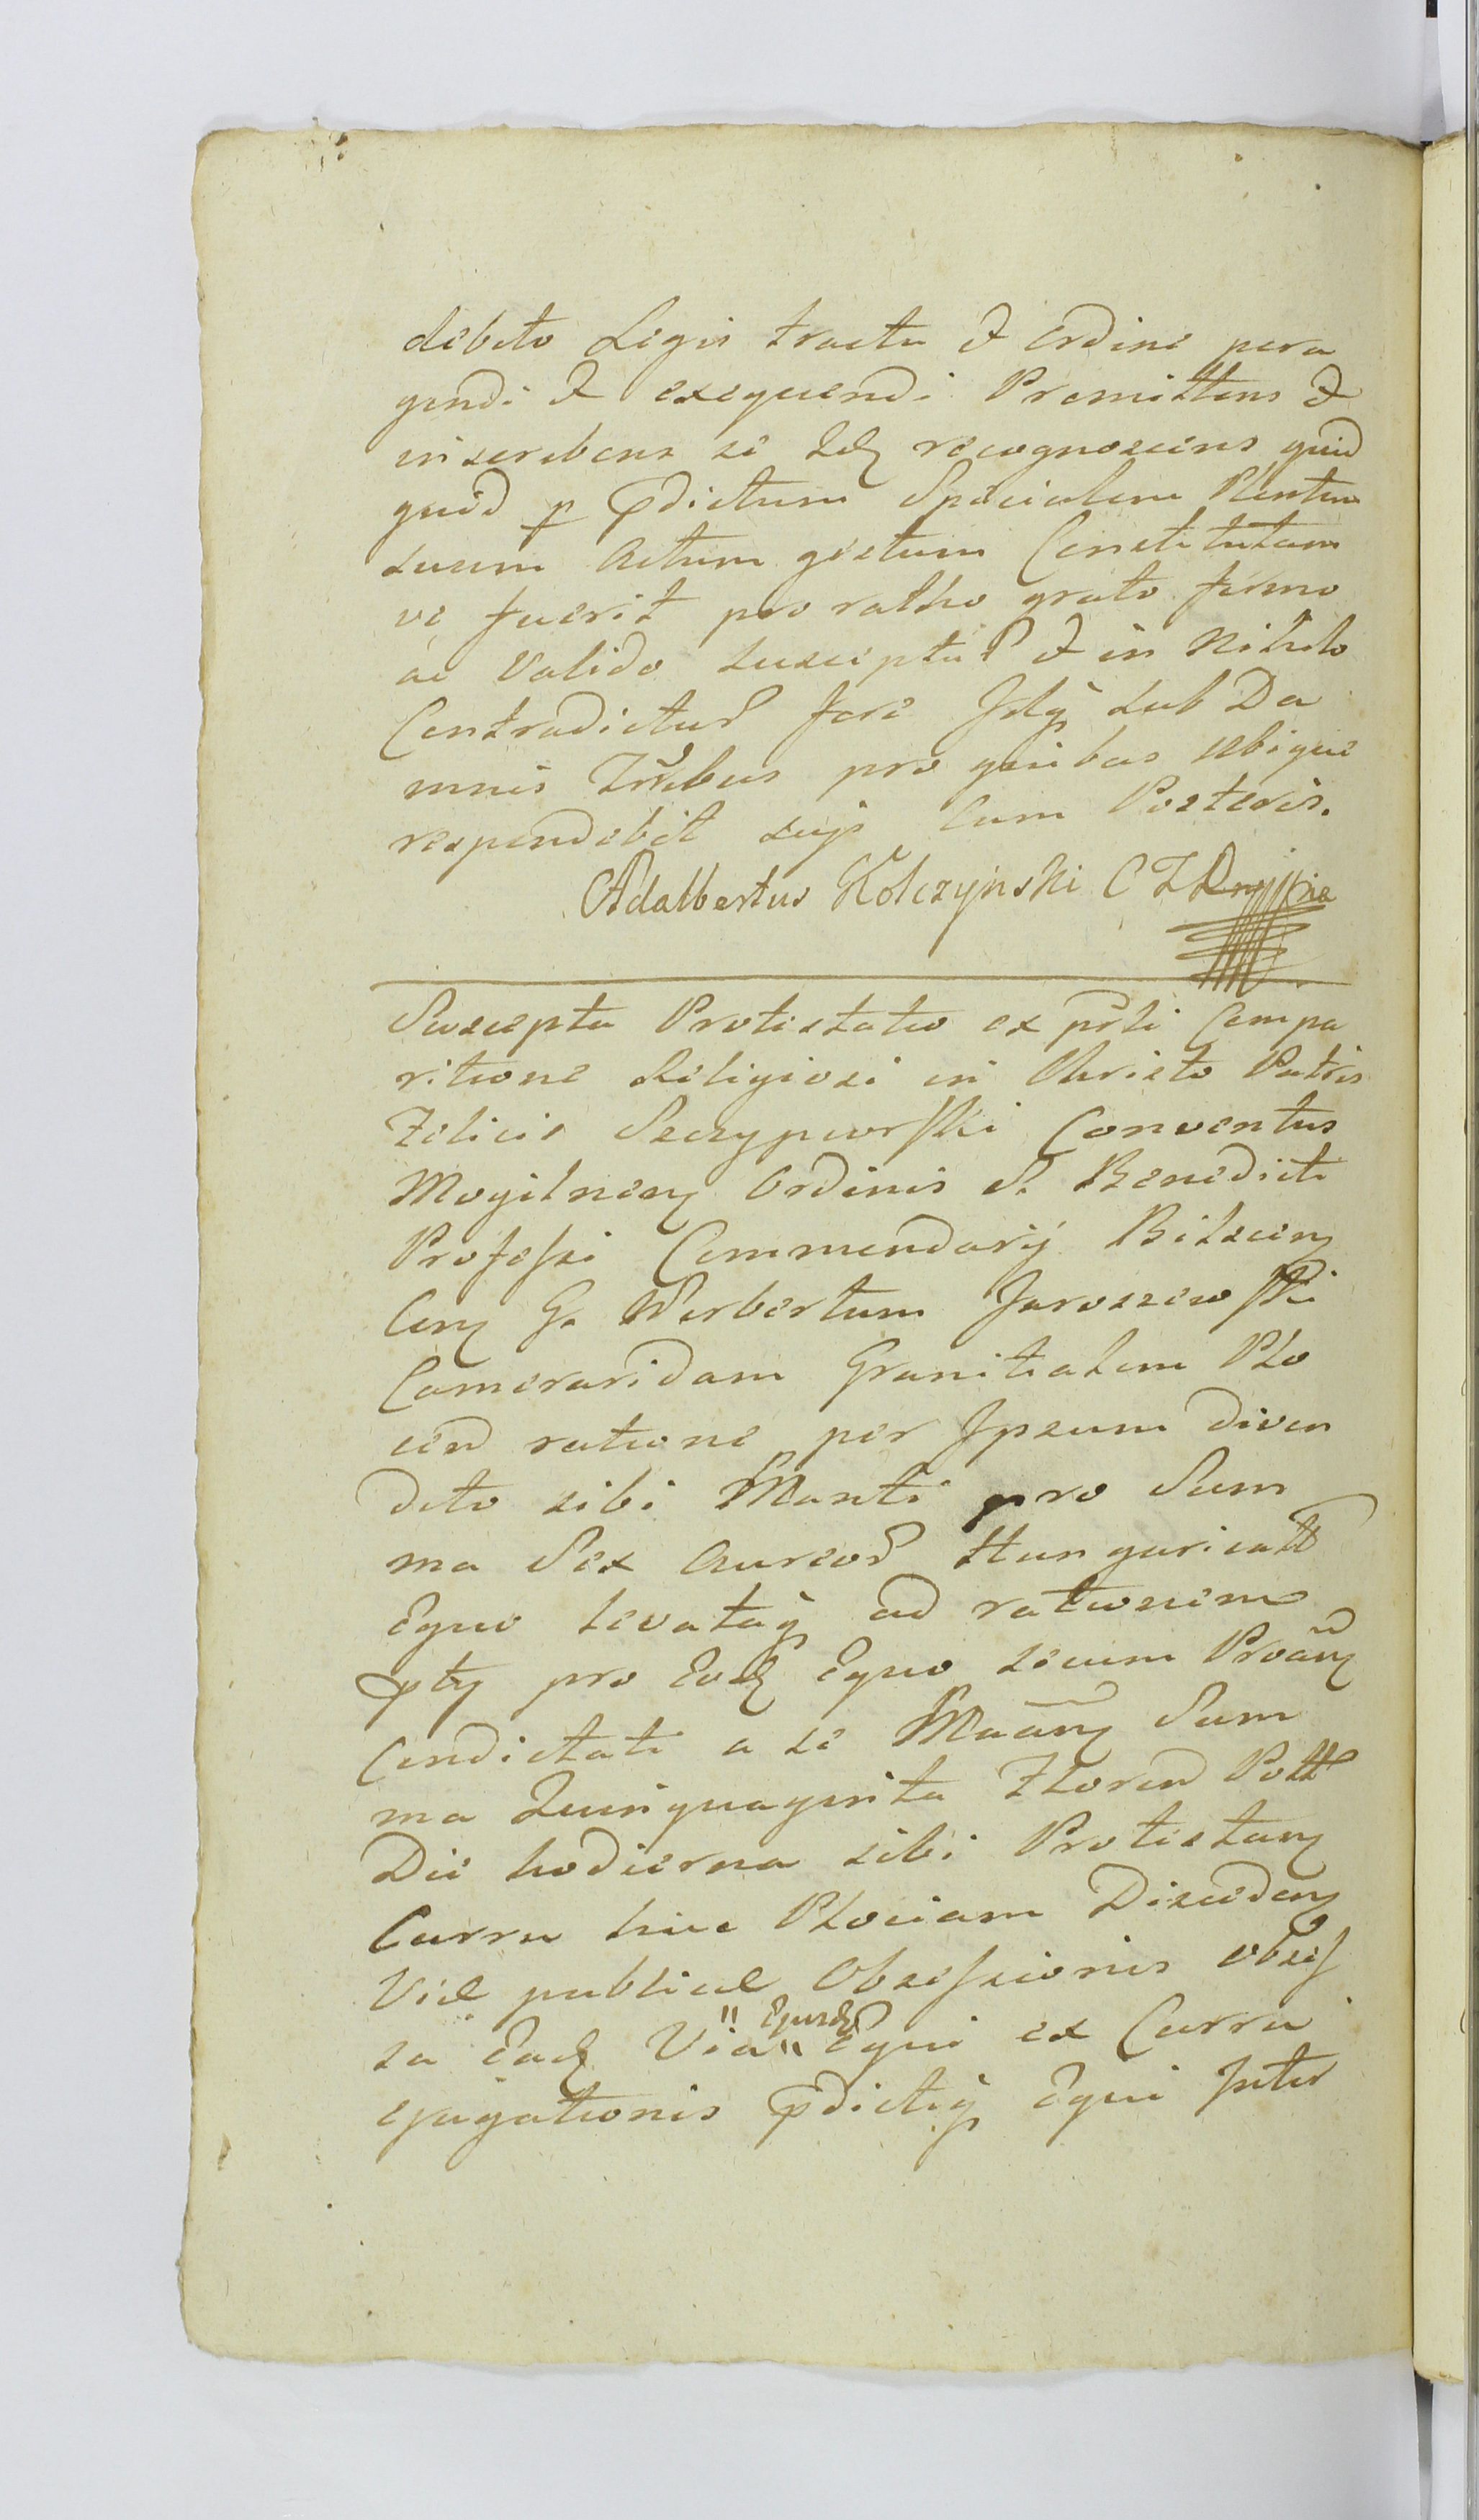 debito Legis tractu & ordine pera
gendi & exequendi Promittens &
inscribens se Idq recognoscens quid
quid p pdictum Specialem Plentum
suum Actum gestum Constitutum
ve fuerit pro ratho grato firmo
ac Valido suscepturū & in Nihilo
Contradicturū fore Idq sub Da
mnis Trribus pro quibus ubique
respondebit suis cum Posteris.
Adalbertus Kolczyński C T
Suscepta Protestatio ex prsti Compa
ritione Religiosi in Christo Patris
Felicis Szczypiorski Conventus
Mogilneń Ordinis S. Benedicti
Professi Commendarij Bilscen
Con G. Norbertum Jaroszewski
Cameraridam Granitialem Plo
cen ratione per Ipsum diven
dito sibi Manti pro Sum
ma Sex Aureorū Hungaricall
Equo levataq ad rationem
ptq pro Eodq Equo secum Proāng
Condictati a se Maāng Sum
ma Quinquaginta Floren Poll
Die hodierna sibi Protestan
Curru hinc Plociam Disceden
Viæ publicæ Obsessionis obses
sa Eadq Via " Ejusdq " Equi ex Curru
ejugationis pdictiq Equi Inter